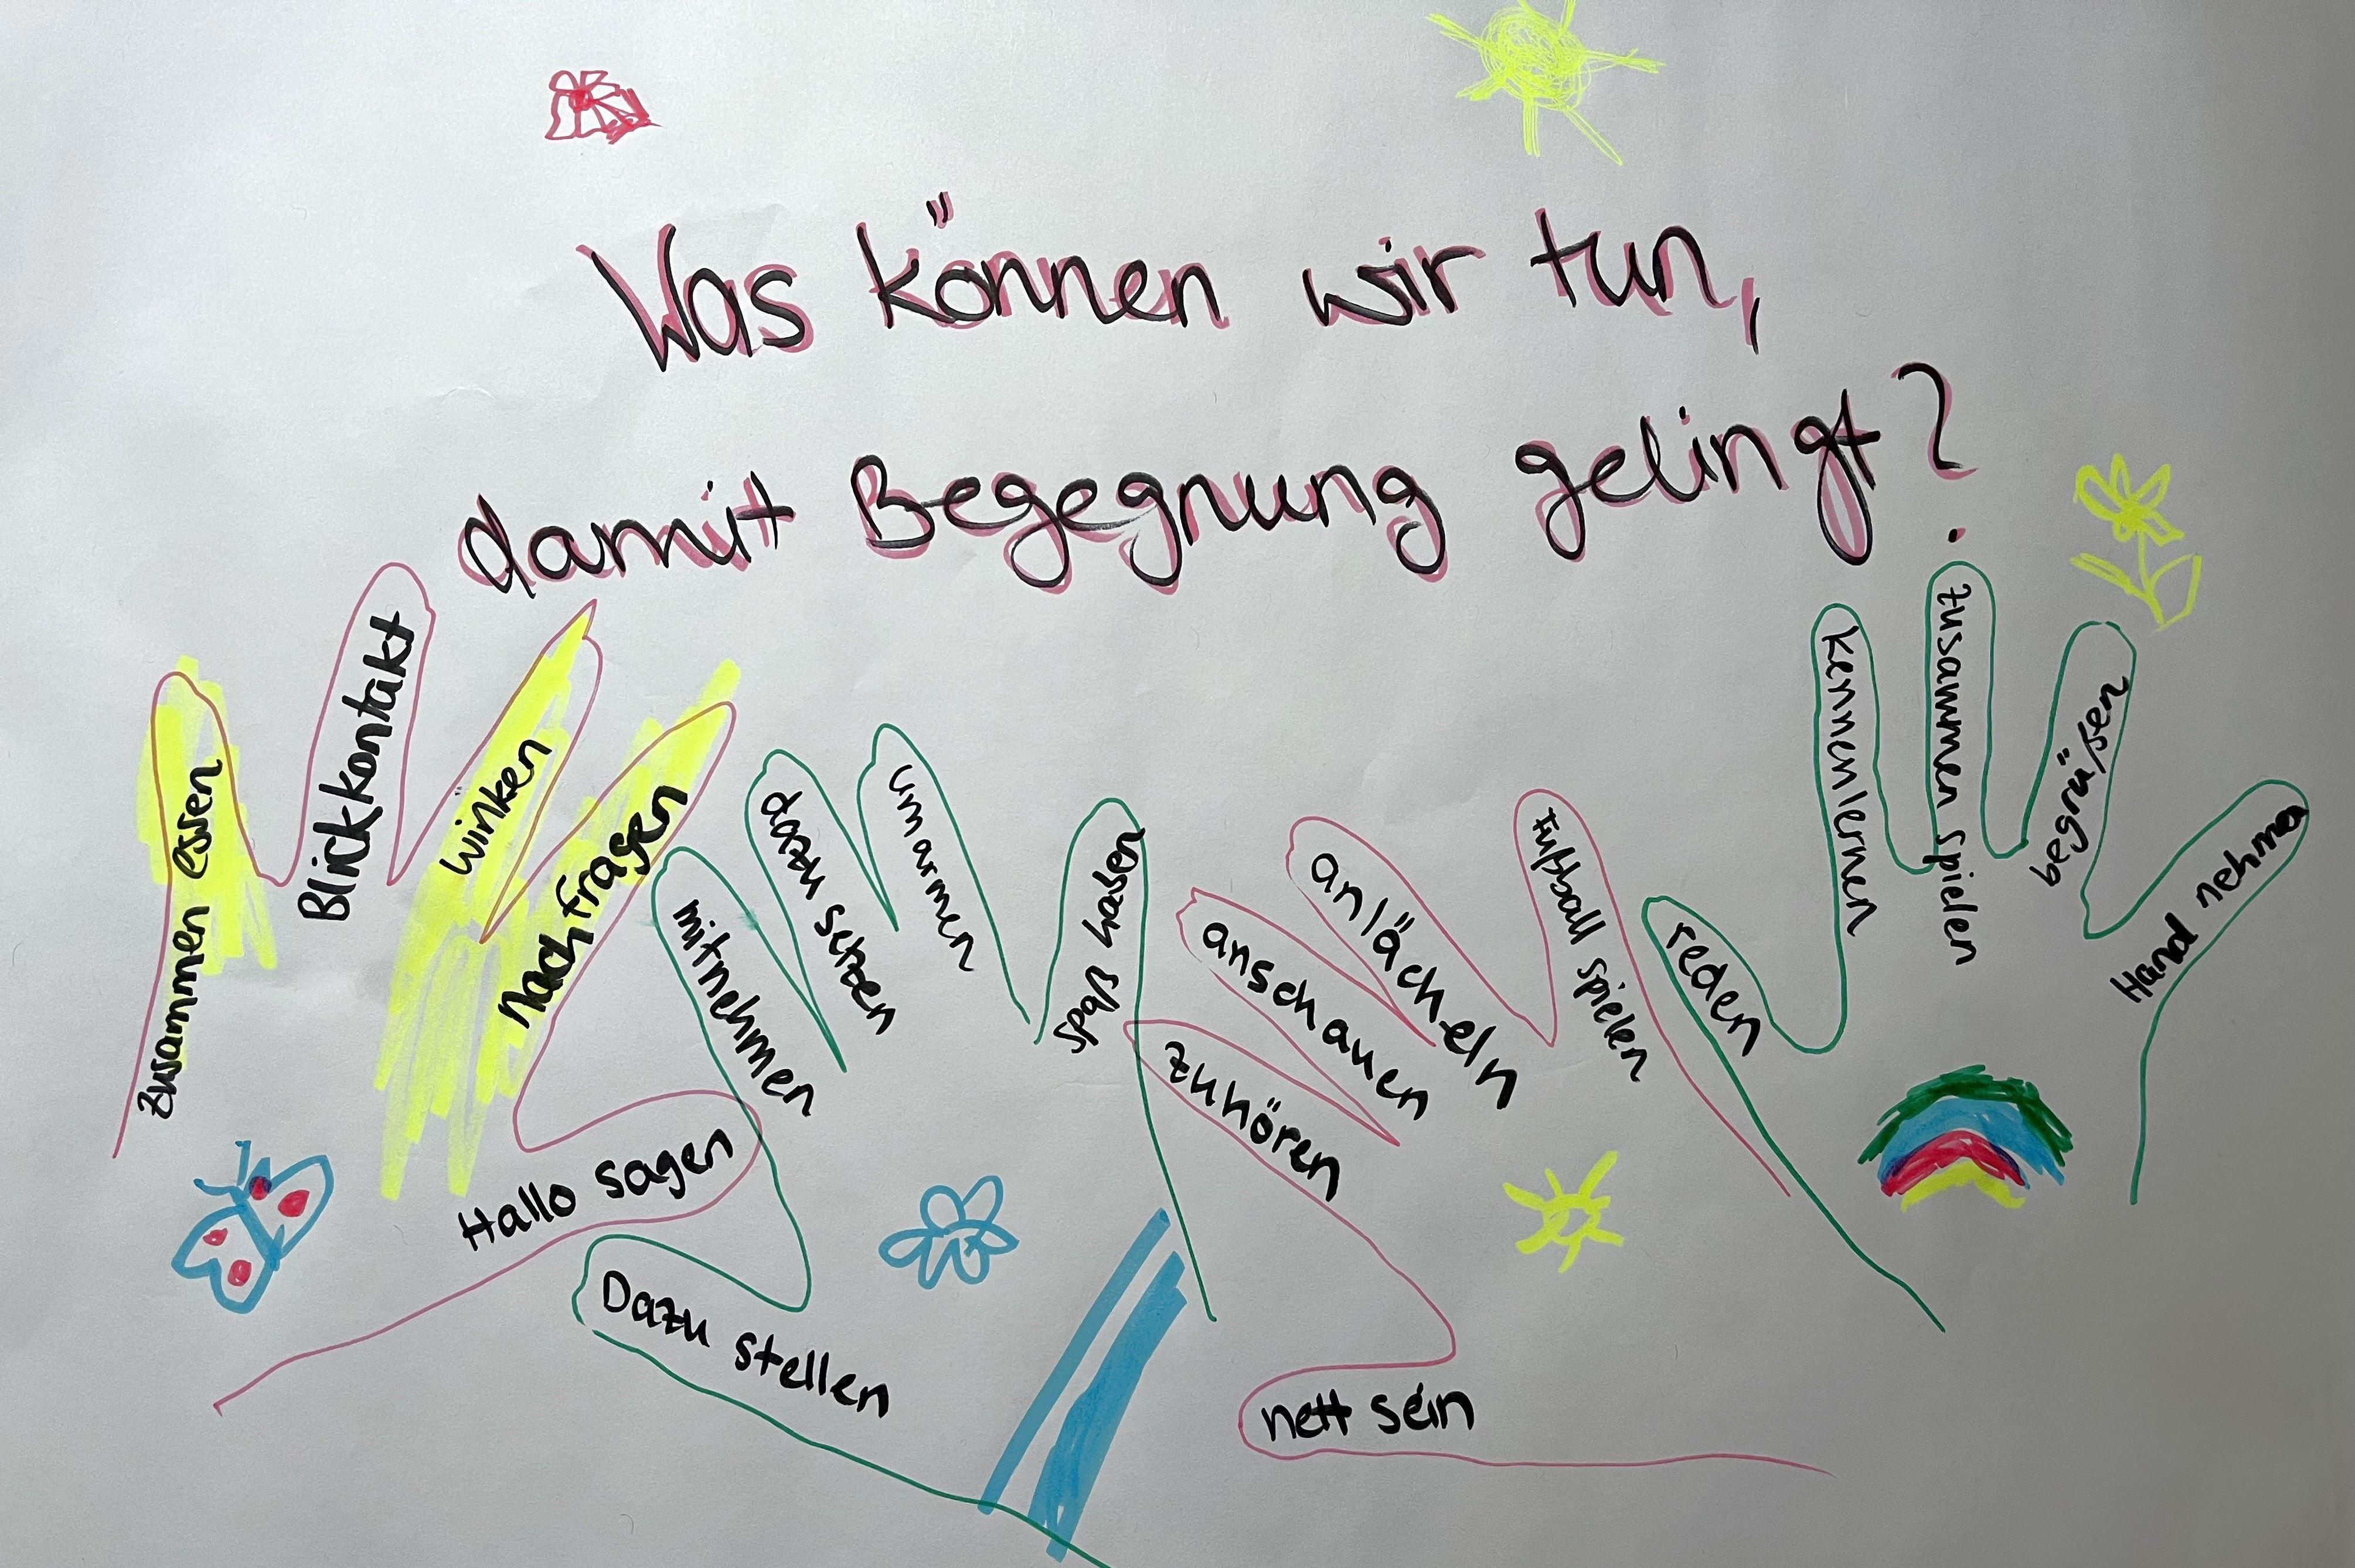 Was können wir tun,
damit Begegnung gelingt?
zusammen essen
Blickkontakt
winken
Nachfragen
Hallo sagen
mitnehmen
dazu setzen
umarmen
Spaß haben
Dazu stellen
zuhören
anschauen
anlächeln
Fußball spielen
nett sein
reden
kennenlernen
zusammen spielen
begrüßen
Hand nehmen